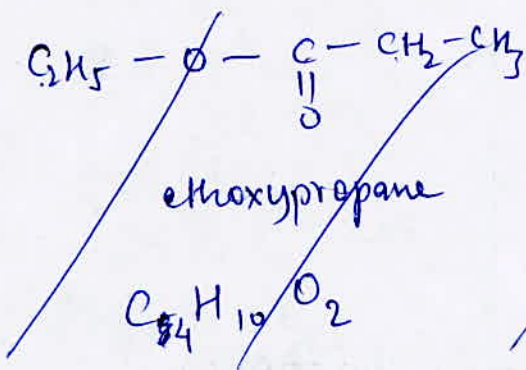 C₂H₅ — O — C — CH₂ — CH₃
||
O
ethoxypropane
C₄H₁₀O₂